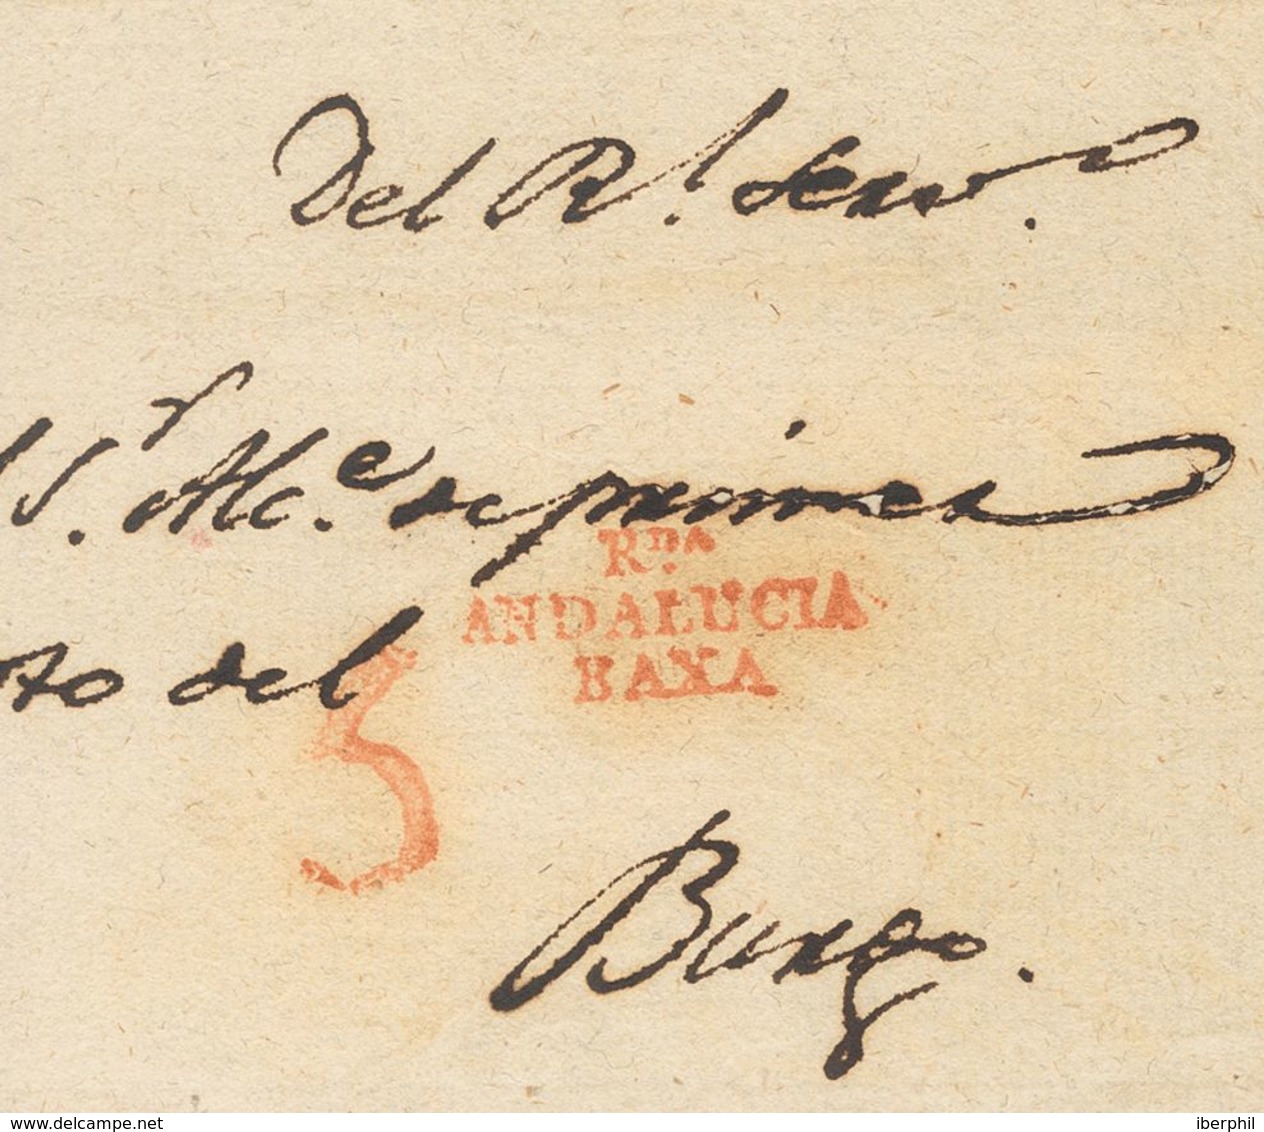 Del R.l serv.o
Sr. Alc.e de primer
Rda.
ANDALUCIA
BAXA
to del
5
Burgo.
www.delcampe.net
iberphil